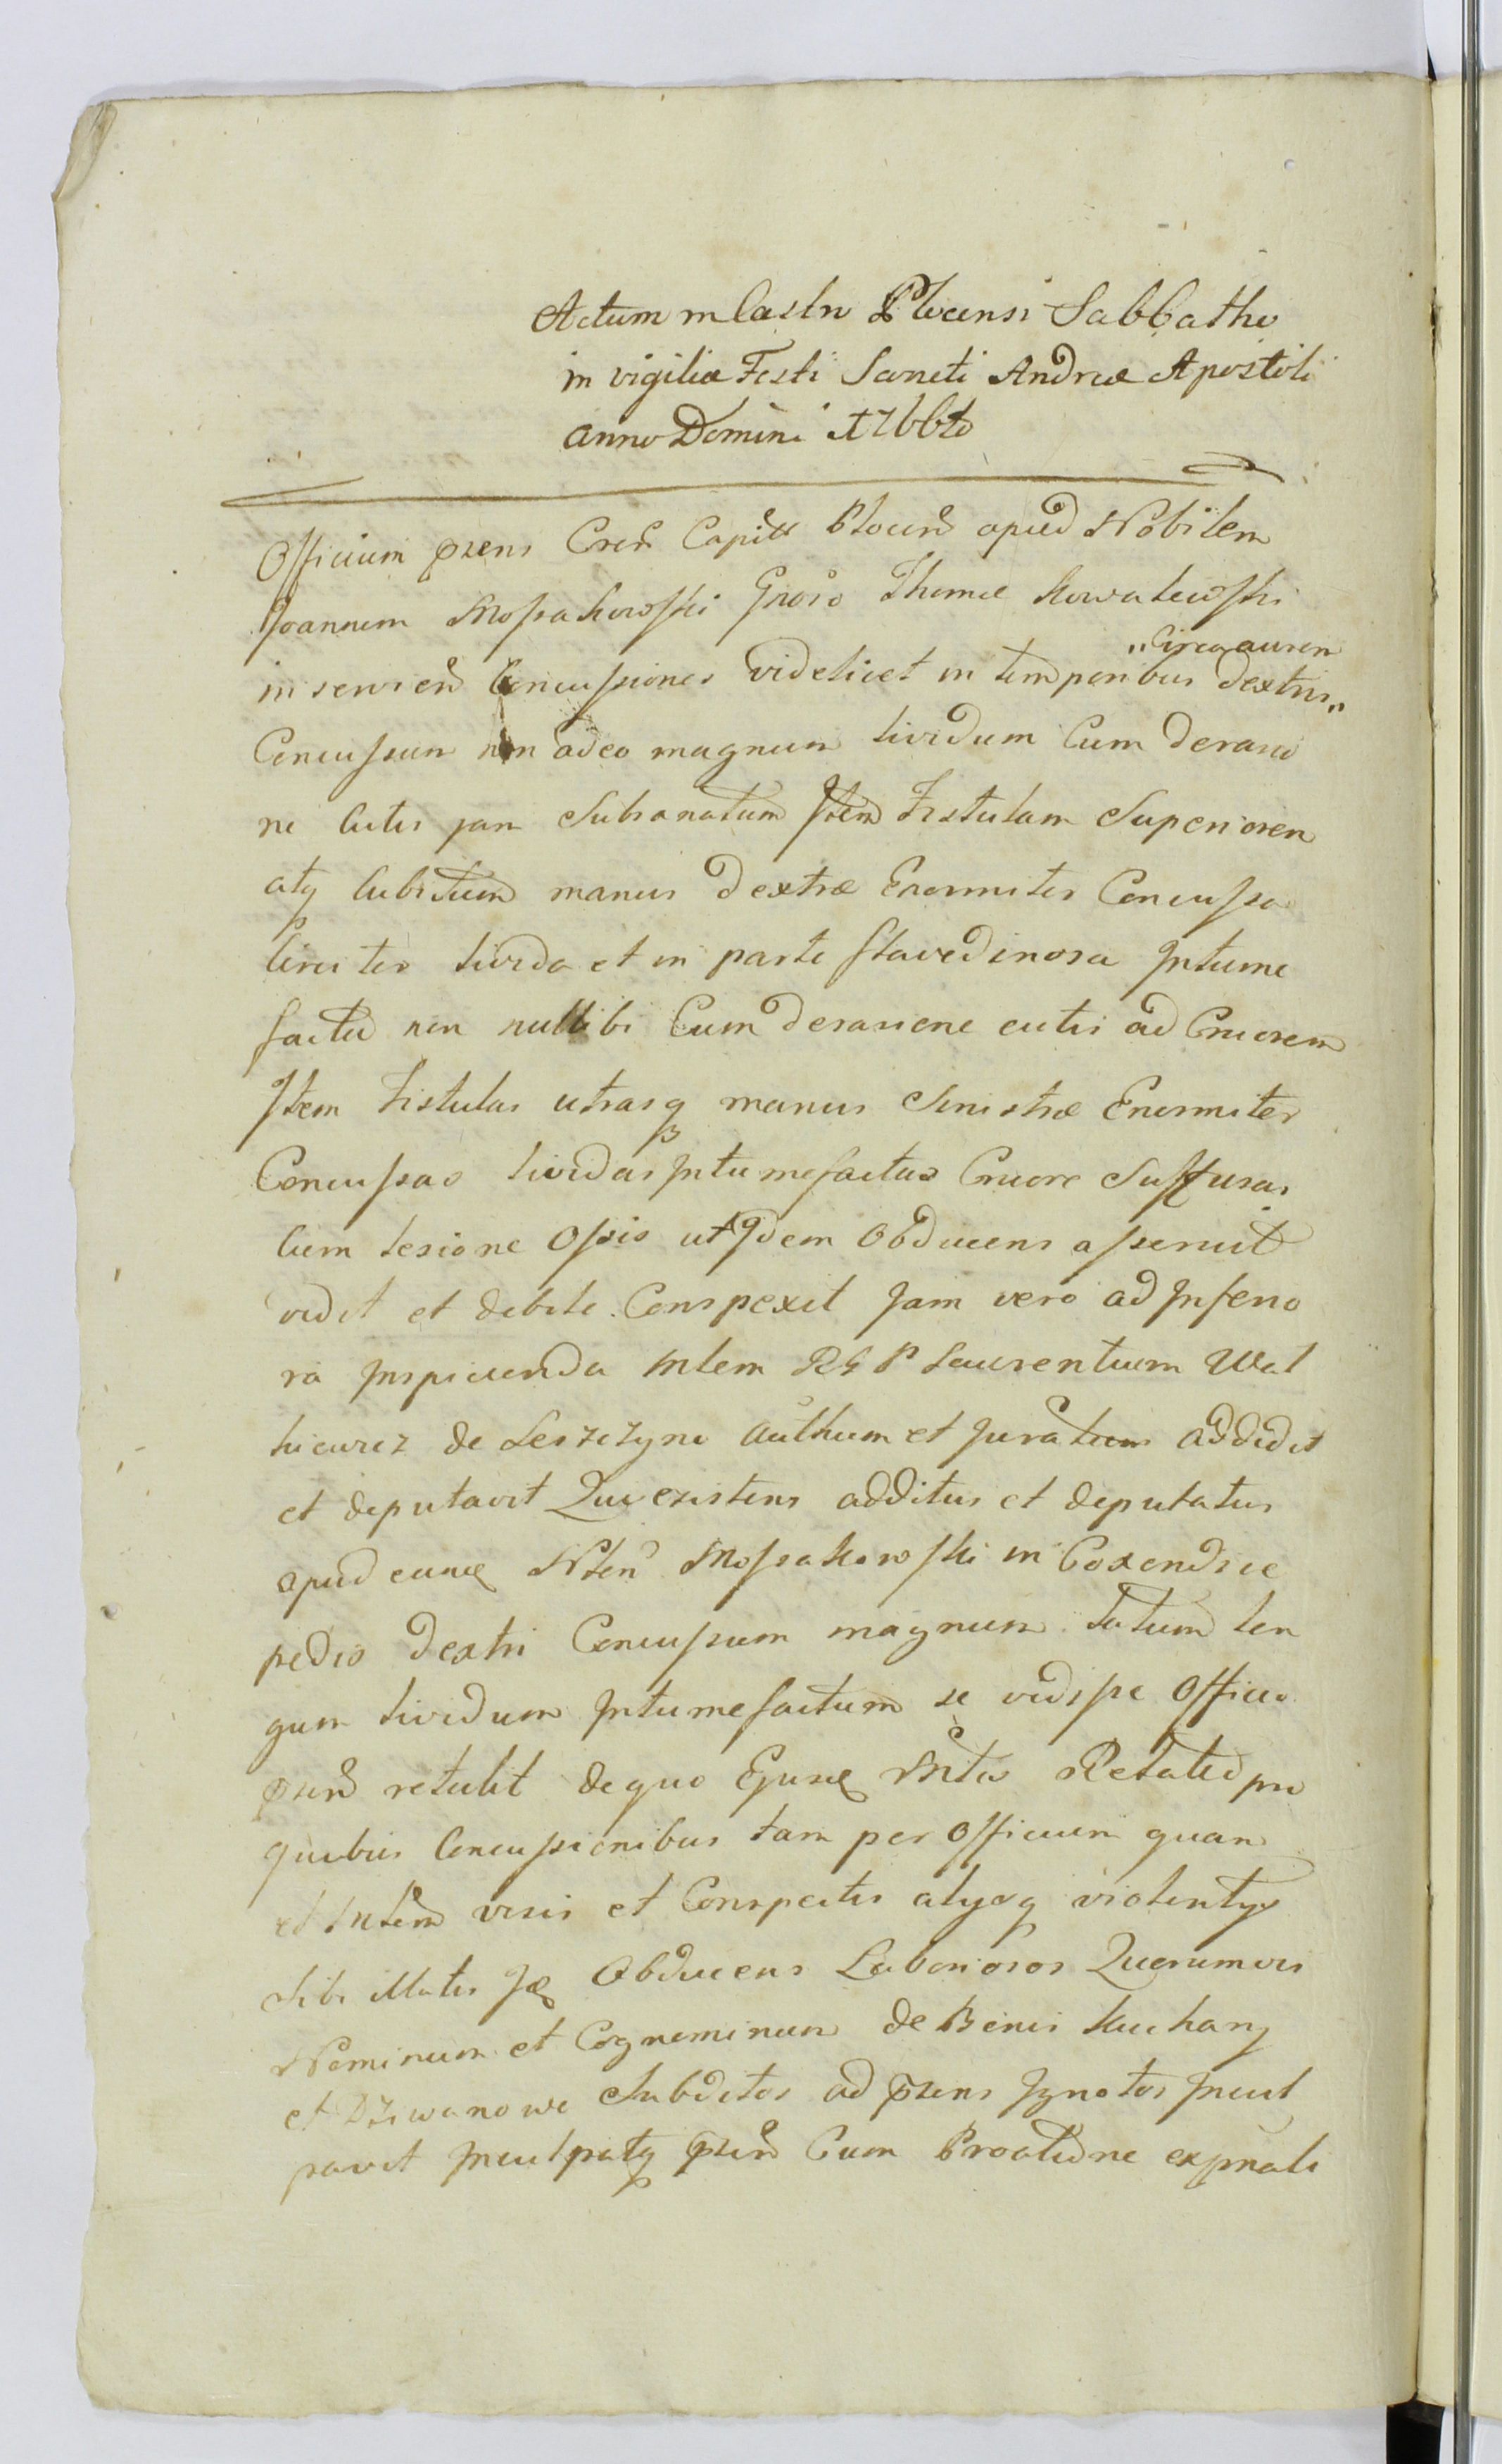 Actum in Castro Plocensi Sabbatho
in vigilia Festi Sancti Andreæ Apostoli
anno Domini 1766to
Officium przens Cren Capitl Plocen apud Nobilem
Joannem Mossakowski Gnoso Thomæ Kowalewski
inservien Concussiones videlicet in temporibus dextris „
„ Circa aurem
Concussum non adeo magnum lividum Cum derasio
ne Cutis jam Subsanatum Item Fistulam Superiorem
atq Cubitum manus dextræ Enormiter Concussa
liviter livida et in parte flavedinosa Intume
facta non nullibi Cum derasione cutis ad Cruorem
Item Fistulas utrasq manus Sinistræ Enormiter
Concussas lividas Intumefactas Cruore Suffusas
Cum lesione Ossis ut Idem Obducens asseruit
vidit et debite Conspexit Jam vero ad Inferio
ra Inspicienda Mlem RGP Laurentium Wal
kiewicz de Leszczyno Authum et Juratum addidit
et deputavit Qui existens additus et deputatus
apud eund Nlem Mossakowski in Coxendice
pedis dextri Concussum magnum Latum lon
gum lividum Intumefactum se vidisse Officio
przen retulit de quo Ejusd Mlis Relatio pro
quibus Concussionibus tam per Officium quam
et Mlem visis et Conspectis alysq violentys
Sibi illatis Id Obducens Laboriosos Quorumvis
Nominum et Cognominum de Bonis Kuchary
et Dziwanowo Subditos ad przens Ignotos Incul
pavit Inculpatq przen Cum Proatione